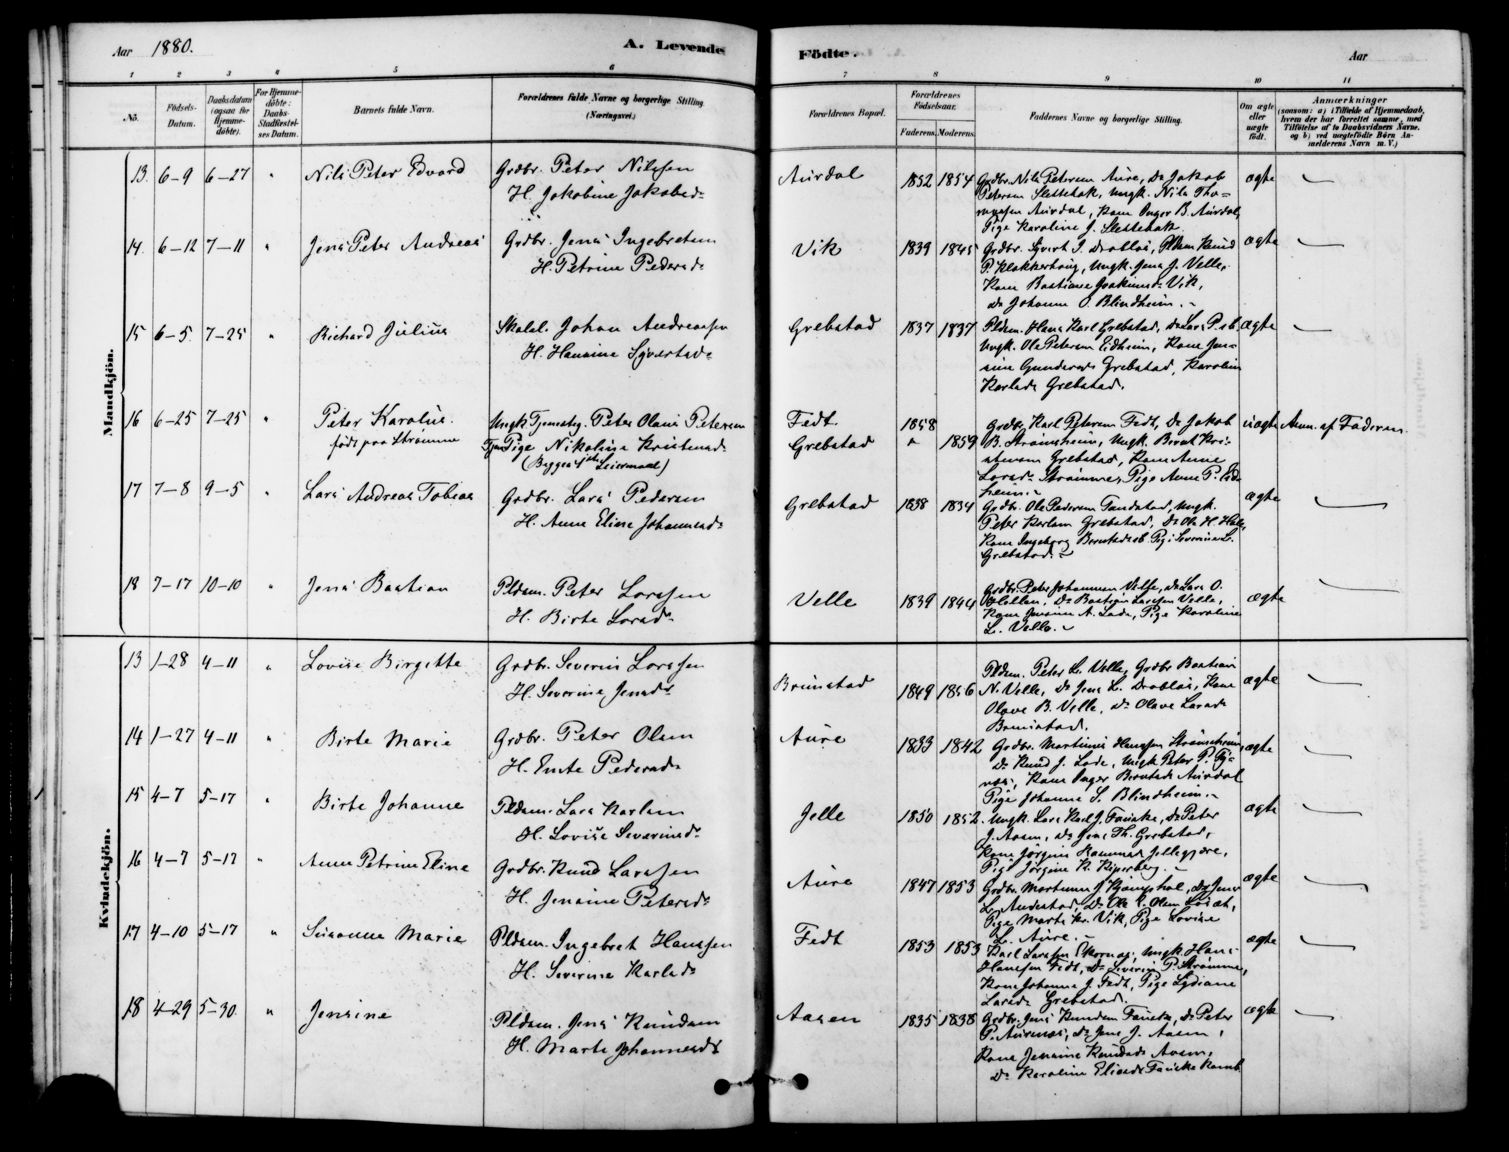 Aar 1880.
A. Levende
Födte.
Aar
1 2 3 4 5 6 7 8 9 10 11
No.
Födsels-Datum.
Daabsdatum (ogsaa for Hjemmedöbte).
For Hjemmedöbte: Daabs-Stadfestelses Datum.
Barnets fulde Navn.
Forældrenes fulde Navne og borgerlige Stilling. (Næringsvei.)
Forældrenes Bopæl.
Forældrenes Födselsaar.
Faderens. Moderens.
Faddernes Navne og borgerlige Stilling.
Om ægte eller uægte födt.
Anmærkninger
(saasom: a) i Tilfælde af Hjemmedaab, hvem der har forrettet samme, med Tilföielse af to Daabsvidners Navne. og b) ved uægtefödte Börn Anmelderens Navn m. V.)
Mandkjön.
13. 6-9 6-27 " Nils Peter Edvard
Grdbr. Peter Nilssen
H. Jakobine Jakobsd.
Aurdal 1852 1854
Grdbr. Nils Petersen Aure, Do Jakob
Petersen Slettebak, Ungk. Nils Tho-
massen Aurdal, Kone Inger B. Aurdal,
Pige Karoline J. Slettebak.
ægte —
14. 6-12 7-11 " Jens Peter Andreas
Grdbr. Jens Ingebretsen
H. Petrine Pedersd.
Vik 1839 1845
Grdbr. Syvert I. Drabløs, Pldsm. Knud
P. Klokkerhaug, Ungk. Jens J. Velle,
Kone Bastiane Joakimsd. Vik,
Do Johanne O. Blindheim.
ægte —
15 6-5. 7-25 " Richard Julius
Skolel. Johan Andreassen
H. Hansine Syvertsd.
Grebstad 1837 1837
Pldsm. Hans Karl Grebstad, Do Lars P. sb.
Ungk. Ole Petersen Eidheim, Kone Jen-
sine Gundersd. Grebstad, Karoline
Karlsd. Grebstad.
ægte —
16 6-25 7-25 " Peter Karolus.
født paa Strømme
Ungk. Tjenestg. Peter Olaus Petersen
Tjen Pige Nikoline Kristensd.
(Begges 1ste Leiermaal)
Fedt 1858
Grebstad " 1859
Grdbr. Karl Petersen Fedt, Do Jakob
B. Strømsheim, Ungk. Bernt Kri-
stensen Grebstad, Kone Anne
Larsd. Strømmen, Pige Anne P. Eid-
heim.
uægte Anm. af Faderen
17 7-8 9-5 " Lars Andreas Tobias
Grdbr. Lars Pedersen
H. Anne Eline Johannesd.
Grebstad 1838 1834
Grdbr. Ole Pedersen Tandstad, Ungk.
Peter Karlsen Grebstad, Do Ole H.
Kone Ingeborg Berntsd. sb. Pige Severine L.
Grebstad.
ægte —
18 7-17 10-10 " Jens Bastian
Pldsm. Peter Larssen
H. Birte Larsd.
Velle 1839 1844
Grdbr. Peter Johannesen Velle, Do Lars O.
Do Bastian Larssen Velle,
Kone Jensine A. Lade, Pige Karoline
L. Velle.
ægte —
Kvindekjön.
13 1-28 4-11 " Lovise Birgitte
Grdbr. Severin Larssen
H. Severine Jensd.
Brunstad 1849 1856
Pldsm. Peter L. Velle, Grdbr. Bastian
N. Velle, Do Jens L. Drabløs, Kone
Olave B. Velle, Do Olave Larsd.
Brunstad.
ægte —
14 1-27 4-11 " Birte Marie
Grdbr. Peter Olsen
H. Ente Pedersd.
Aure 1833 1842
Grdbr. Martinus Hanssen Strømsheim,
Do Knud J. Lade, Ungk. Peter P.
Kone Inger Berntsd. Aurdal
Pige Johanne S. Blindheim.
ægte —
15 4-7 5-17 " Birte Johanne
Pldsm. Lars Karlsen
H. Lovise Severinsd.
Jelle 1850 1852.
Ungk. Lars Karl J. Fauske, Do Peter
J. Aasen, Do Jens Th. Grebstad,
Kone Jørgine Jellegjære,
Pige Jørgine K.
ægte —
16 4-7 5-17 " Anne Petrine Eline
Grdbr. Knud Larssen
H. Jensine Petersd.
Aure 1847 1853
Grdbr. Martinus J. Kjemphol, Do Jens
L. Andestad, Do Ole
Pige Marte Kr. Vik, Pige Lovise
L. Aure.
ægte —
17 4-10 5-17 " Susanne Marie
Pldsm. Ingebret Hanssen
H. Severine Karlsd.
Fedt 1853 1853
Karl Larssen Ungk. Hans
Hanssen Fedt, Do Severin P. Strømme,
Kone Johanne J. Fedt, Pige Lydiane
Larsd. Grebstad.
ægte —
18 4-29 5-30. " Jensine
Pldsm. Jens Knudsen
H. Marte Johannesd.
Aasen 1835 1838
Grdbr. Jens Knudsen Fauske, Do Peter
P. Aurenes, Do Jens J. Aasen,
Kone Jensine Knudsd. Aasen,
Do Karoline Eliasd. Fauske
ægte —